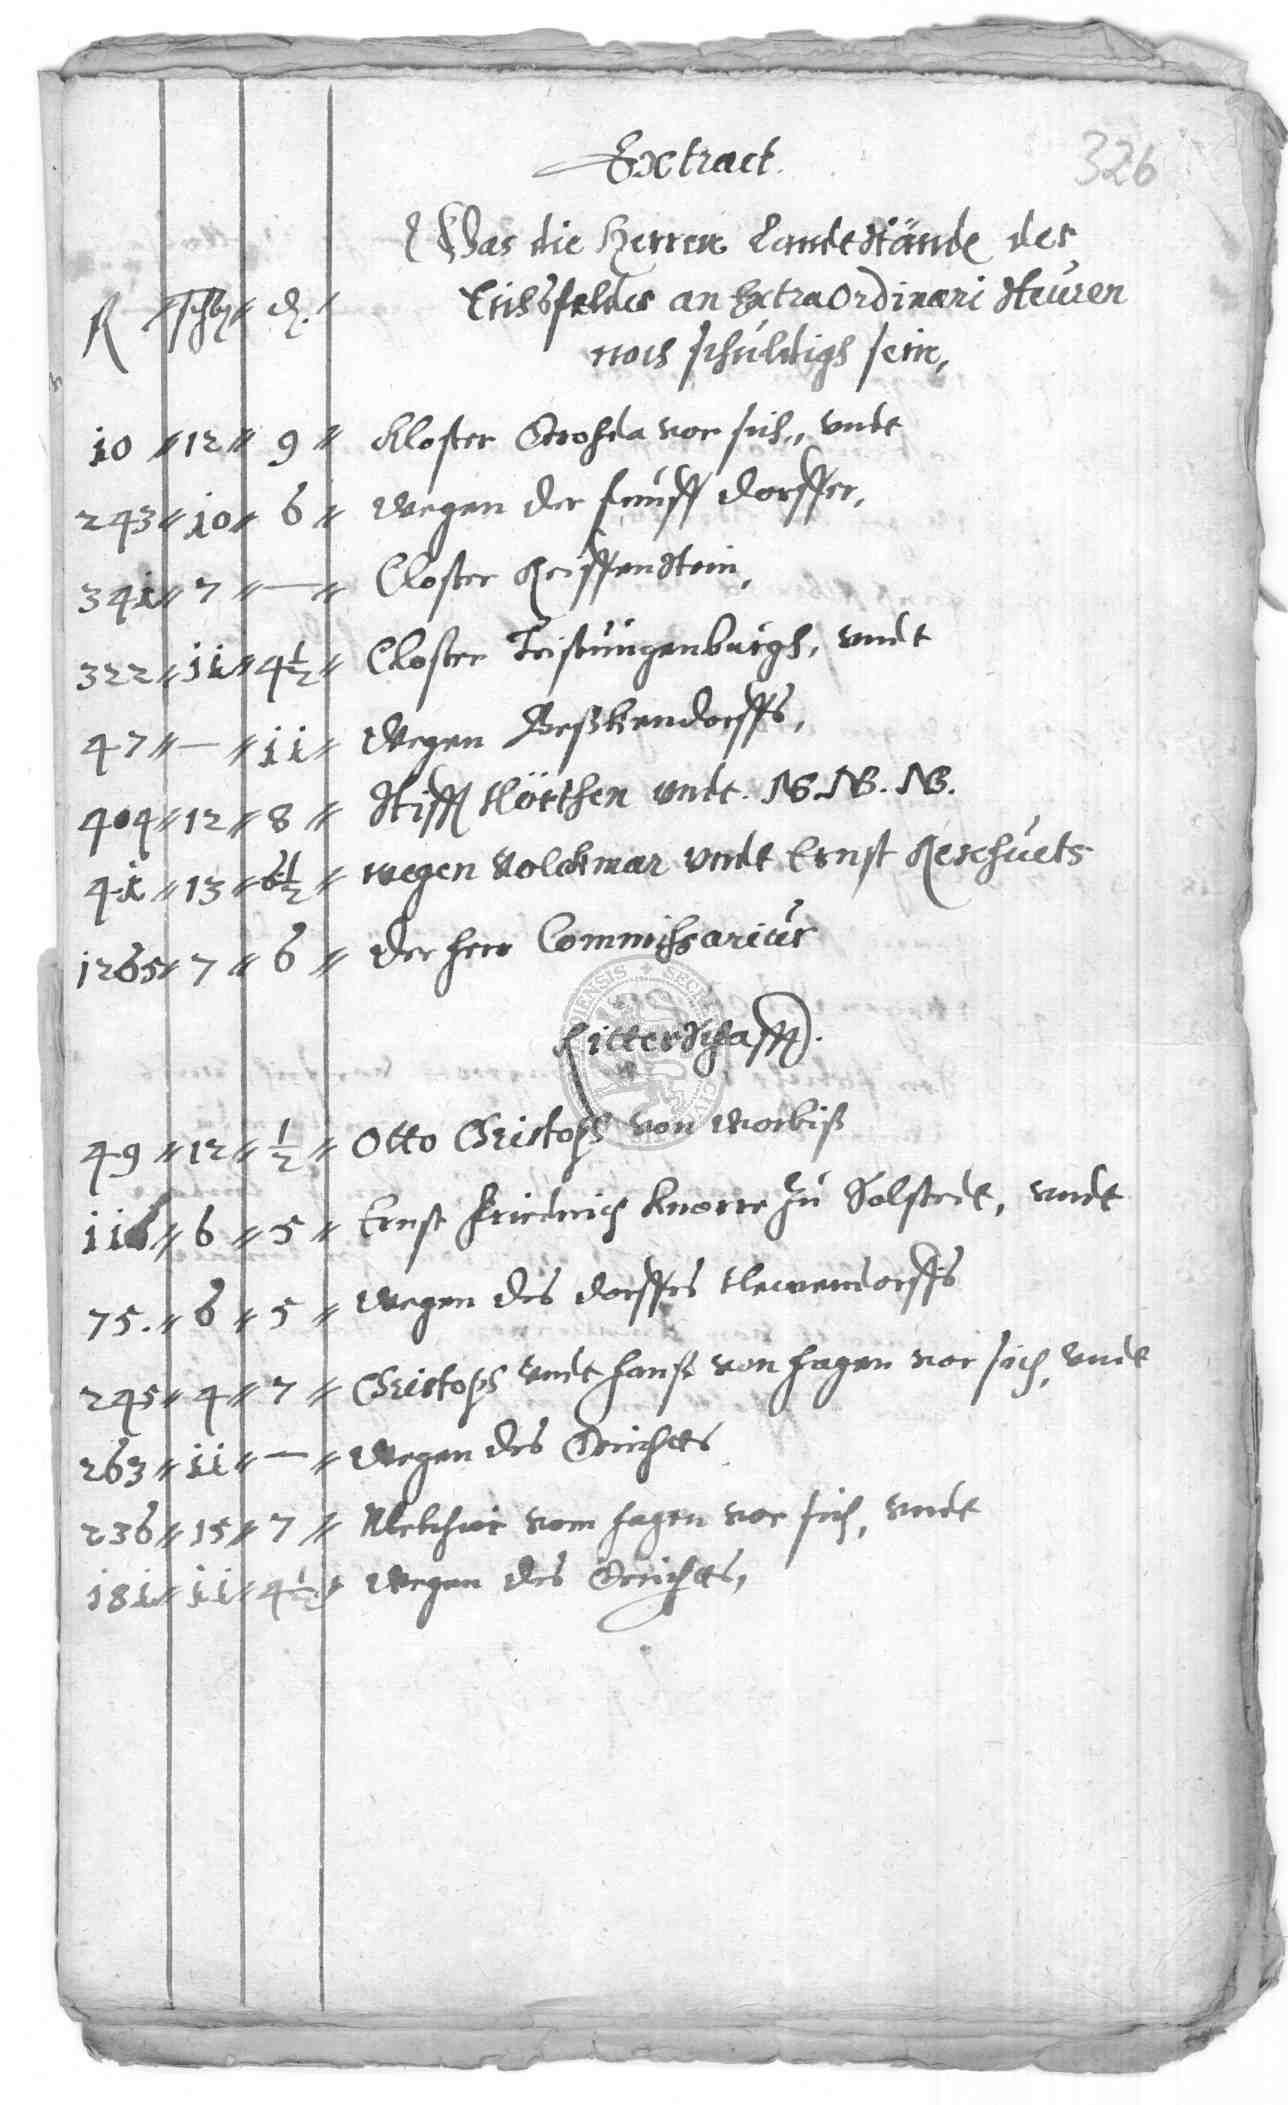 Extract
326
Was die Herren Landtstände des
Eichsfeldes an ExtraOrdinari Steuren
noch schuldigh sein,
R // schg // ₰ //
10 // 12 // 9 // Kloster Gerohda vor sich, undt
243 // 10 // 6 // wegen der fünff dorffer,
341 // 7 // — // Closter Reiffenstein,
322 // 11 // 4½ // Closter Teistungenburgh, undt
47 // — // 11 // Wegen Beßkendorffs,
404 // 12 // 8 // Stifft Nörthen undt. NB. NB. NB.
41 // 13 // 6½ // wegen Volckmar undt Ernst
1265 // 7 // 6 // der herr Commissarius
Ritterschafft.
49 // 12 // ½ // Otto Christoph von Worbiß
// 6 // 5 // Ernst Friedrich Knorre zu Solstedt, undt
75. // 6 // 5 // Wegen des dorffes Newendorffs
245 // 4 // 7 // Christoph undt Hanß von Hagen vor sich, undt
263 // 11 // — // Wegen des Gerichtts
236 // 15 // 7 // Melchior vom Hagen vor sich, undt
181 // 11 // 4½ // Wegen des Gerichtts,